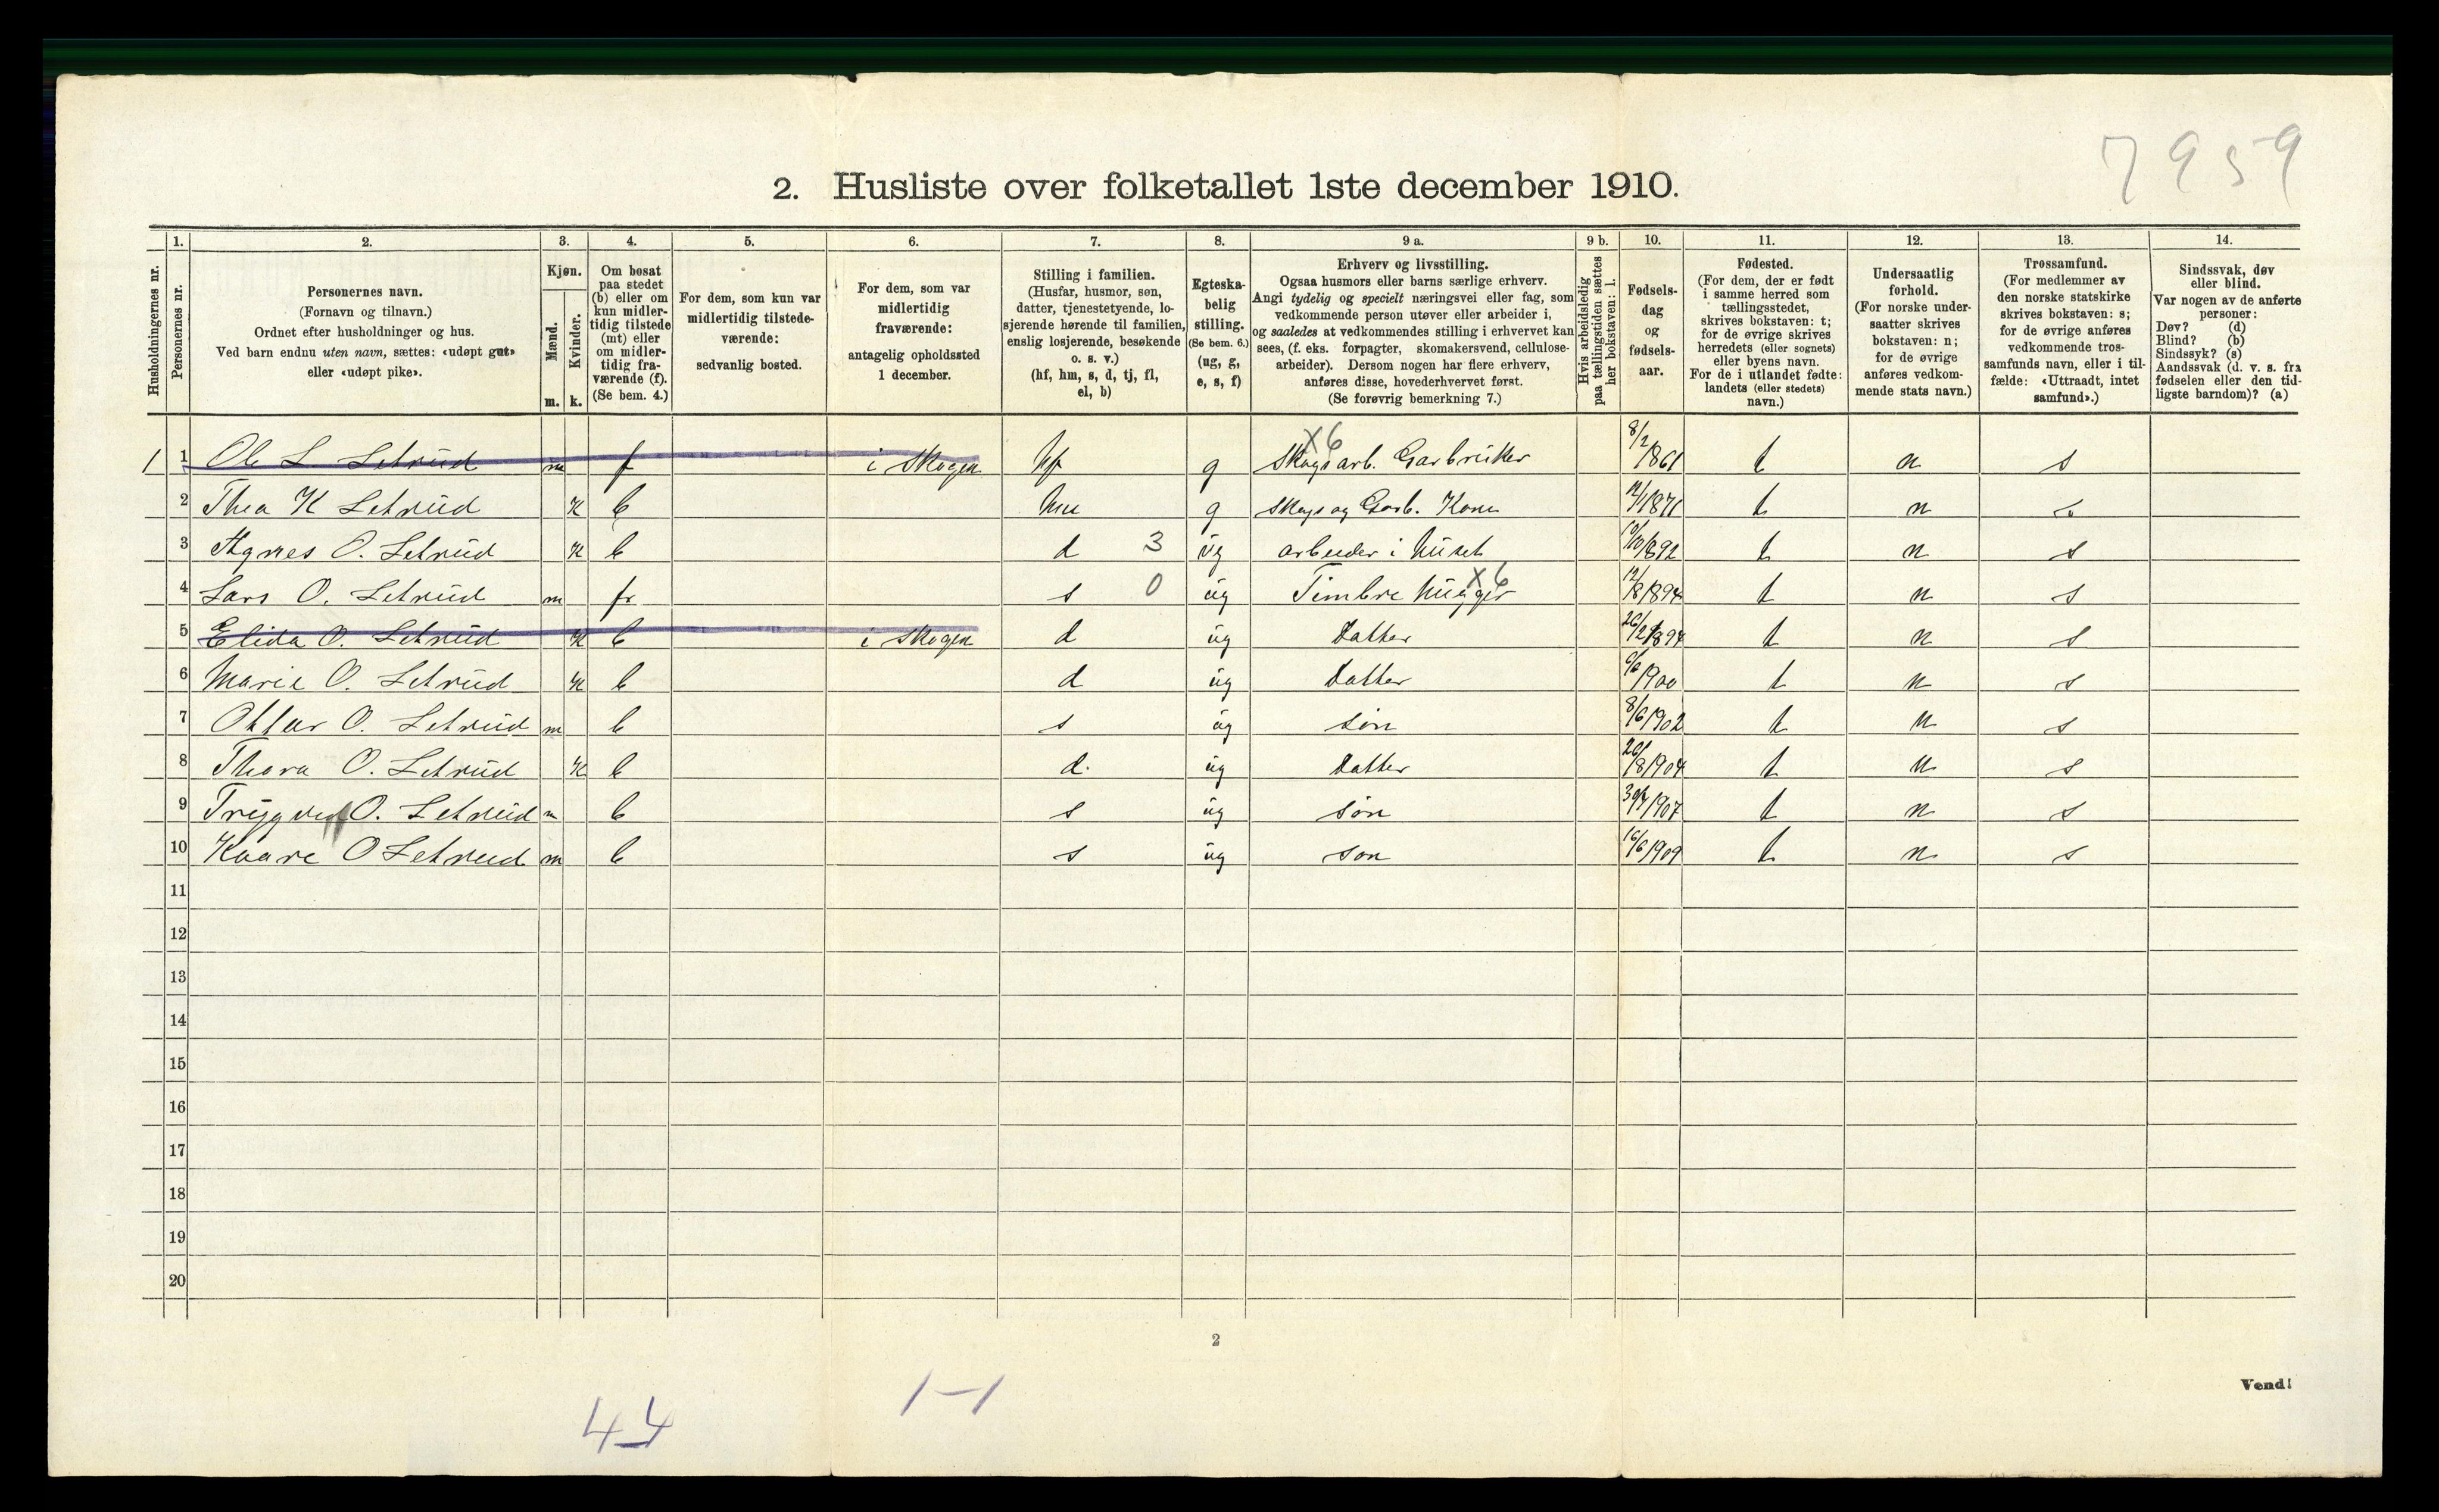 7959
2. Husliste over folketallet 1ste december 1910.
Husholdningernes nr.
1. Personernes nr.
2. Personernes navn. (Fornavn og tilnavn.) Ordnet efter husholdninger og hus. Ved barn endnu uten navn, sættes: «udøpt gut» eller «udøpt pike».
3. Kjøn. Mænd. m. Kvinder. k.
4. Om bosat paa stedet (b) eller om kun midlertidig tilstede (mt) eller om midlertidig fraværende (f). (Se bem. 4.)
5. For dem, som kun var midlertidig tilstedeværende: sedvanlig bosted.
6. For dem, som var midlertidig fraværende: antagelig opholdssted 1 december.
7. Stilling i familien. (Husfar, husmor, søn, datter, tjenestetyende, losjerende hørende til familien, enslig losjerende, besøkende o. s. v.) (hf, hm, s, d, tj, fl, el, b)
8. Egteskabelig stilling. (Se bem. 6.) (ug, g, e, s, f)
9 a. Erhverv og livsstilling. Ogsaa husmors eller barns særlige erhverv. Angi tydelig og specielt næringsvei eller fag, som vedkommende person utøver eller arbeider i, og saaledes at vedkommendes stilling i erhvervet kan sees, (f. eks. forpagter, skomakersvend, cellulosearbeider). Dersom nogen har flere erhverv, anføres disse, hovederhvervet først. (Se forøvrig bemerkning 7.)
9 b. Hvis arbeidsledig paa tællingstiden sættes her bokstaven: l.
10. Fødselsdag og fødselsaar.
11. Fødested. (For dem, der er født i samme herred som tællingsstedet, skrives bokstaven: t; for de øvrige skrives herredets (eller sognets) eller byens navn. For de i utlandet fødte: landets (eller stedets) navn.)
12. Undersaatlig forhold. (For norske undersaatter skrives bokstaven: n; for de øvrige anføres vedkommende stats navn.)
13. Trossamfund. (For medlemmer av den norske statskirke skrives bokstaven: s; for de øvrige anføres vedkommende trossamfunds navn, eller i tilfælde: «Uttraadt, intet samfund».)
14. Sindssvak, døv eller blind. Var nogen av de anførte personer: Døv? (d) Blind? (b) Sindssyk? (s) Aandssvak (d. v. s. fra fødselen eller den tidligste barndom)? (a)
1 1 Ole L Letrud m f i Skogen hf g Skogsarb. Garbruker x6 8/2 1861 t n s
2 Thea K Letrud K b hm g Skogs og Garb. Kone 12/1 1871 t n s
3 Agnes O. Letrud K b d 3 ug arbeider i huset 10/10 1892 t n s
4 Lars O. Letrud m fr s 0 ug Timbrehugger x6 12/8 1894 t n s
5 Elida O. Letrud K b i Skogen d ug Datter t n s
6 Marie O. Letrud K b d ug Datter 6/6 1900 t n s
7 Ottar O. Letrud m b s ug søn 8/6 1902 t n s
8 Thora O. Letrud K b d. ug Datter 20/8 1904 t n s
9 Trygve O. Letrud m b s ug søn t n s
10 Kaare O Letrud m b s ug søn 16/6 1909 t n s
11
12
13
14
15
16
17
18
19
20
2
Vend!
44
1-1